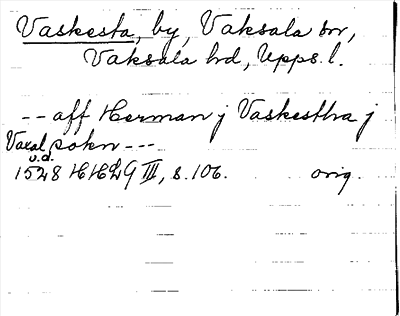 Vaskesta, by, Vaksala sn,
Vaksala hd, Upps. l.
-- aff Herman j Vaskestha j
Vaxal sokn ---
u.d.
1528 HH29 III, s. 106. orig.